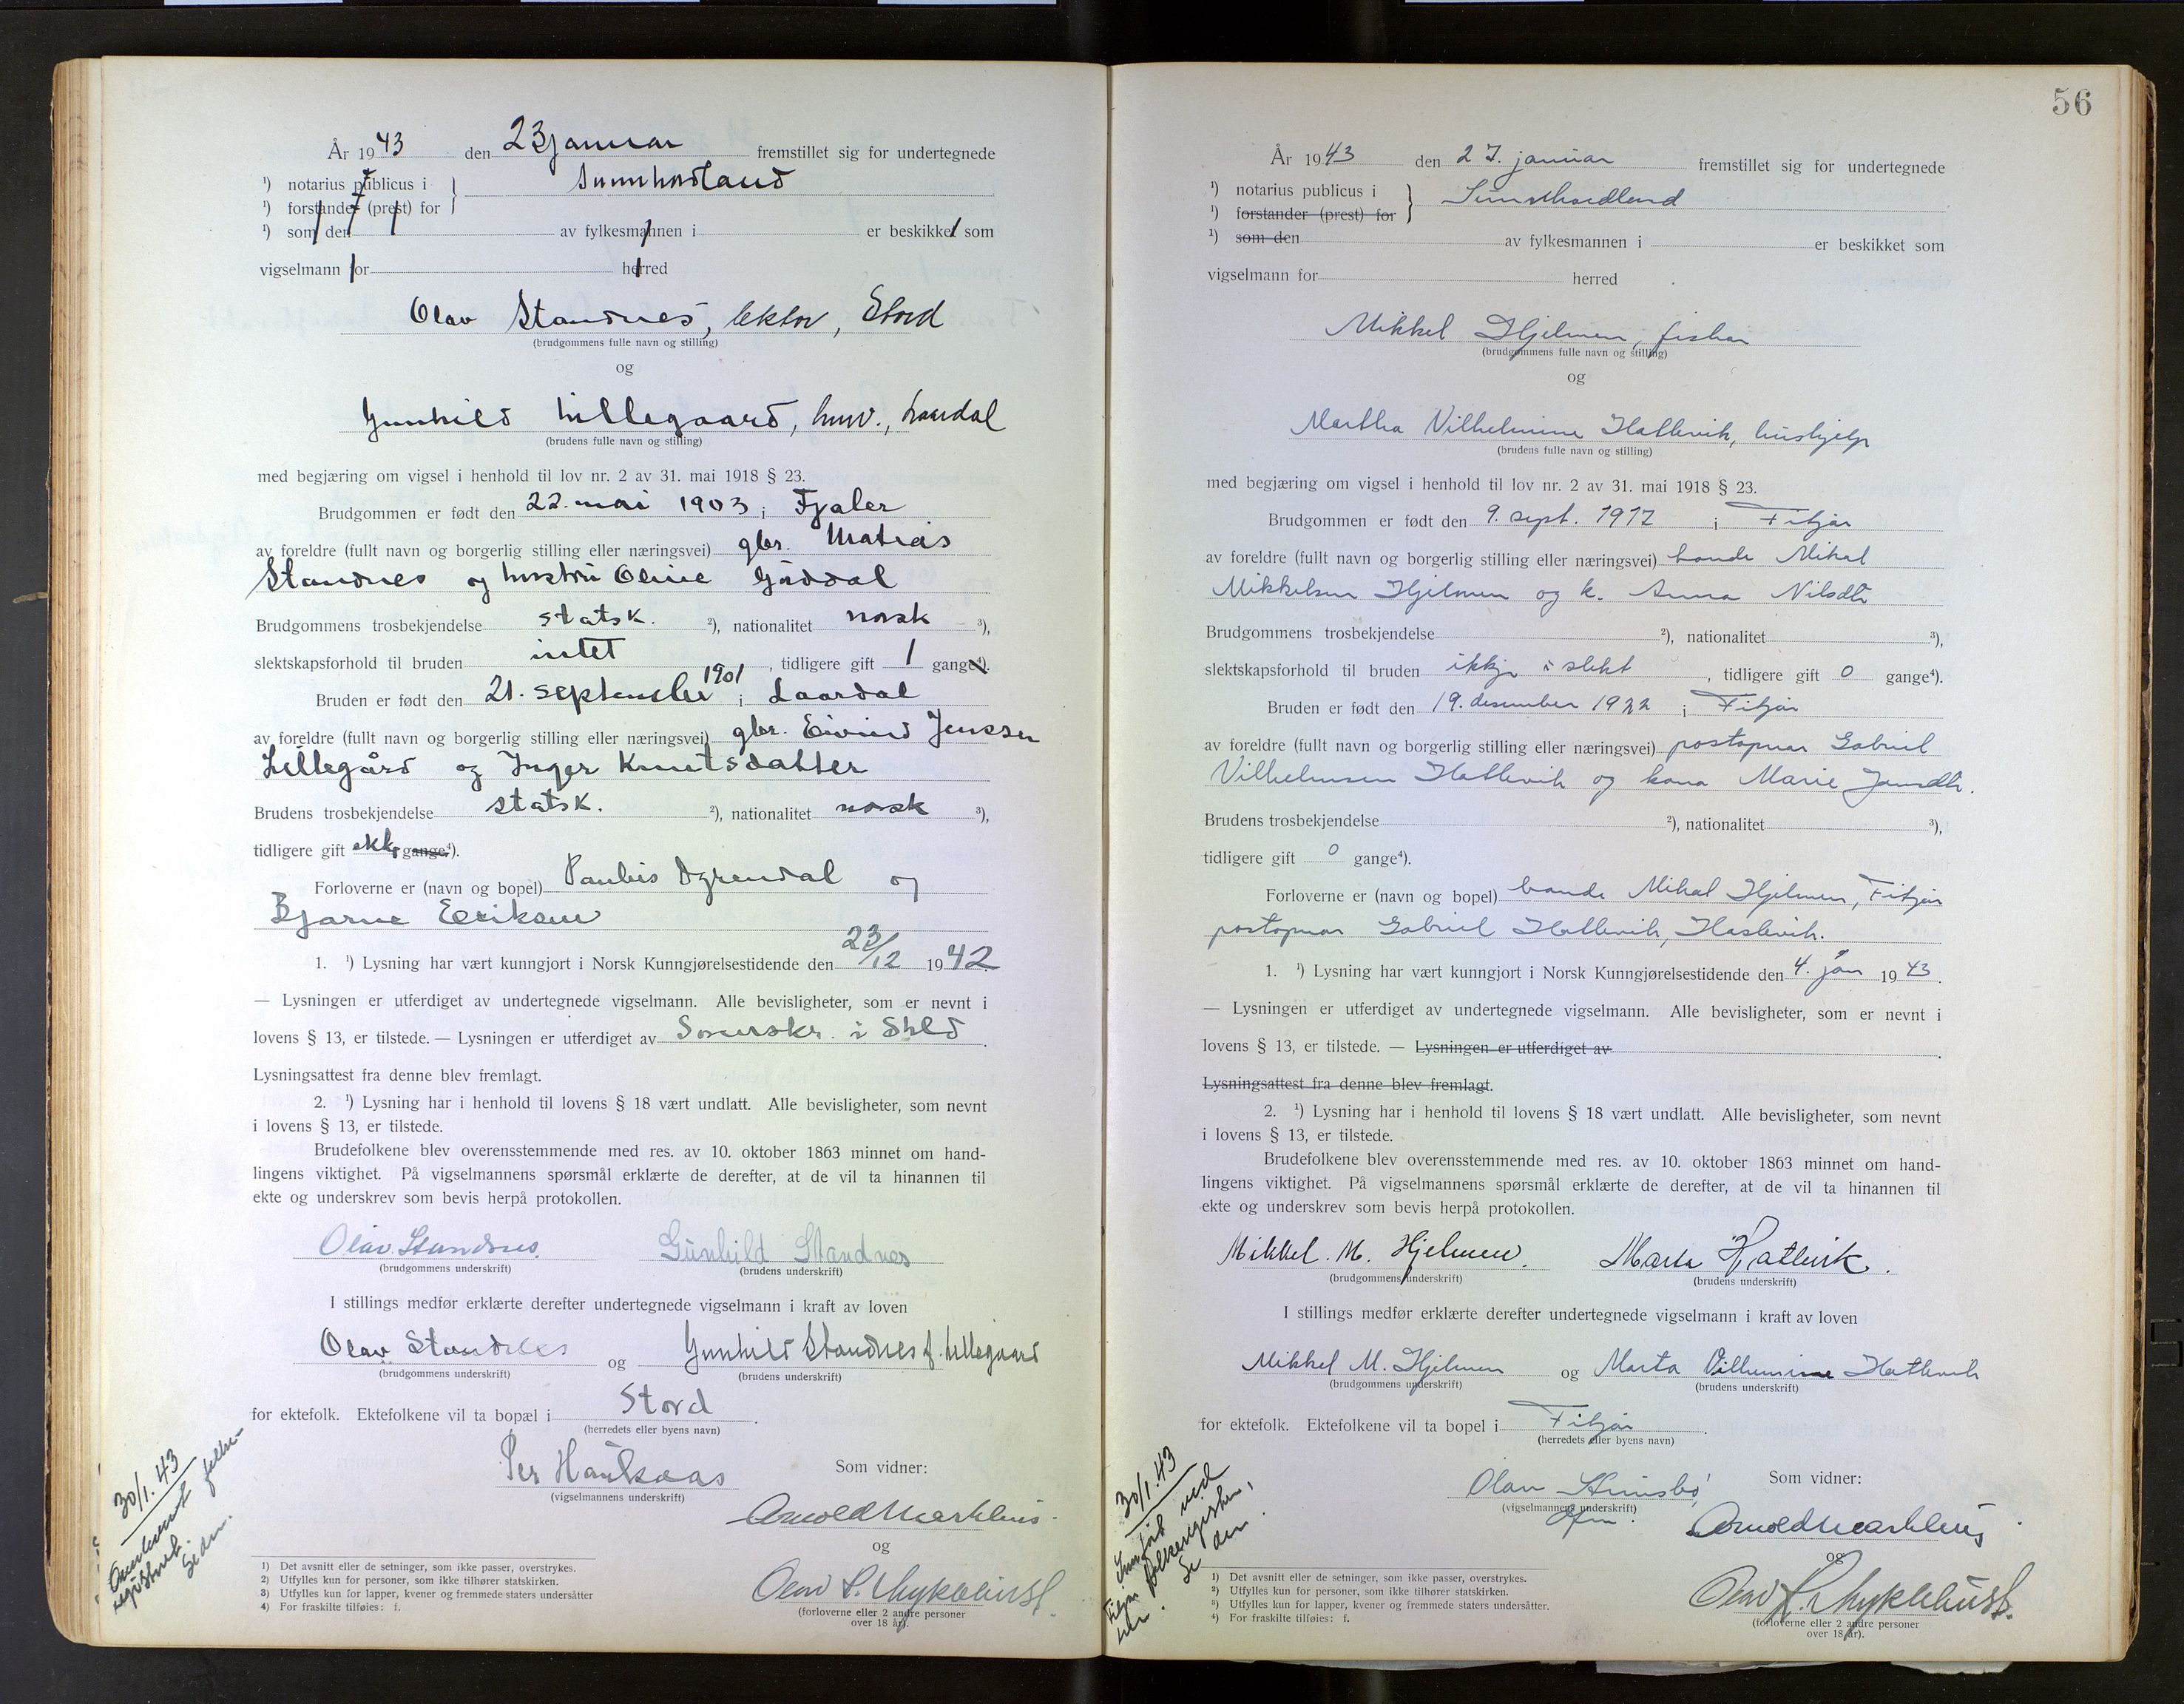 År 1943 den 23 januar fremstillet sig for undertegnede
¹) notarius publicus i } Sunnhordland
¹) forstander (prest) for
¹) som den av fylkesmannen i er beskikket som
vigselmann for herred
Olav Standnes, lektor, Stord
(brudgommens fulle navn og stilling)
og
Gunhild Lillegaard, husv., Laardal
(brudens fulle navn og stilling)
med begjæring om vigsel i henhold til lov nr. 2 av 31. mai 1918 § 23.
Brudgommen er født den 22. mai 1903 i Fjaler
av foreldre (fullt navn og borgerlig stilling eller næringsvei) gbr. Matias
Standnes og hustru Oline Gåddal
Brudgommens trosbekjendelse statsk. ²), nationalitet norsk ³),
slektskapsforhold til bruden intet, tidligere gift 1 gange⁴).
Bruden er født den 21. september 1901 i Laardal
av foreldre (fullt navn og borgerlig stilling eller næringsvei) gbr. Eivind Jenssen
Lillegård og Inger Knutsdatter
Brudens trosbekjendelse statsk. ²), nationalitet norsk ³),
tidligere gift ikke gange⁴).
Forloverne er (navn og bopel) Dyrendal og
Bjarne Eriksen
1. ¹) Lysning har vært kunngjort i Norsk Kunngjørelsestidende den 23/12 1942.
— Lysningen er utferdiget av undertegnede vigselmann. Alle bevisligheter, som er nevnt i
lovens § 13, er tilstede. — Lysningen er utferdiget av Sorenskr. i
Lysningsattest fra denne blev fremlagt.
2. ¹) Lysning har i henhold til lovens § 18 vært undlatt. Alle bevisligheter, som nevnt
i lovens § 13, er tilstede.
Brudefolkene blev overensstemmende med res. av 10. oktober 1863 minnet om hand-
lingens viktighet. På vigselmannens spørsmål erklærte de derefter, at de vil ta hinannen til
ekte og underskrev som bevis herpå protokollen.
Olav Standnes. Gunhild Standnes
(brudgommens underskrift) (brudens underskrift)
I stillings medfør erklærte derefter undertegnede vigselmann i kraft av loven
Olav Standnes og Gunhild Standnes f. Lillegaard
(brudgommens underskrift) (brudens underskrift)
for ektefolk. Ektefolkene vil ta bopæl i Stord.
(herredets eller byens navn)
Per Hauknaas
(vigselmannens underskrift)
Som vidner:
Arnold Marklus
og
Olav S. Myklebust.
(forloverne eller 2 andre personer
over 18 år).
30/1. 43
folke-
registret.
Se dm.
1) Det avsnitt eller de setninger, som ikke passer, overstrykes.
2) Utfylles kun for personer, som ikke tilhører statskirken.
3) Utfylles kun for lapper, kvener og fremmede staters undersåtter
4) For fraskilte tilføies: f.
56
År 1943 den 27. januar fremstillet sig for undertegnede
¹) notarius publicus i } Sunnhordland
¹) forstander (prest) for
¹) som den av fylkesmannen i er beskikket som
vigselmann for herred
Mikkel Hjelmen, fiskar
(brudgommens fulle navn og stilling)
og
Martha Vilhelmine Hatlevik, hushjelp
(brudens fulle navn og stilling)
med begjæring om vigsel i henhold til lov nr. 2 av 31. mai 1918 § 23.
Brudgommen er født den 9. sept. 1912 i Fitjar
av foreldre (fullt navn og borgerlig stilling eller næringsvei) bonde Mikal
Mikkelsen Hjelmen og k. Anna Nilsdtr
Brudgommens trosbekjendelse ²), nationalitet ³),
slektskapsforhold til bruden ikkje i slekt, tidligere gift 0 gange⁴).
Bruden er født den 19. desember 1922 i Fitjar
av foreldre (fullt navn og borgerlig stilling eller næringsvei) postopnar Gabriel
Vilhelmsen Hatlevik og kona Marie Jansdtr.
Brudens trosbekjendelse ²), nationalitet ³),
tidligere gift 0 gange⁴).
Forloverne er (navn og bopel) bonde Mikal Hjelmen, Fitjar
postopnar Gabriel Hatlevik, Haslevik.
1. ¹) Lysning har vært kunngjort i Norsk Kunngjørelsestidende den 4. jan 1943.
— Lysningen er utferdiget av undertegnede vigselmann. Alle bevisligheter, som er nevnt i
lovens § 13, er tilstede. — Lysningen er utferdiget av
Lysningsattest fra denne blev fremlagt.
2. ¹) Lysning har i henhold til lovens § 18 vært undlatt. Alle bevisligheter, som nevnt
i lovens § 13, er tilstede.
Brudefolkene blev overensstemmende med res. av 10. oktober 1863 minnet om hand-
lingens viktighet. På vigselmannens spørsmål erklærte de derefter, at de vil ta hinannen til
ekte og underskrev som bevis herpå protokollen.
Mikkel. M. Hjelmen. Marta Hatlevik.
(brudgommens underskrift) (brudens underskrift)
I stillings medfør erklærte derefter undertegnede vigselmann i kraft av loven
Mikkel M. Hjelmen og Marta Vilhelmine Hatlevik
(brudgommens underskrift) (brudens underskrift)
for ektefolk. Ektefolkene vil ta bopel i Fitjar.
(herredets eller byens navn)
Olav
(vigselmannens underskrift)
Som vidner:
Arnold Marklus
og
Olav S. Myklebust.
(forloverne eller 2 andre personer
over 18 år).
30/1. 43
ved
Fitjar folkeregister,
Se dm.
1) Det avsnitt eller de setninger, som ikke passer, overstrykes.
2) Utfylles kun for personer, som ikke tilhører statskirken.
3) Utfylles kun for lapper, kvener og fremmede staters undersåtter.
4) For fraskilte tilføies: f.